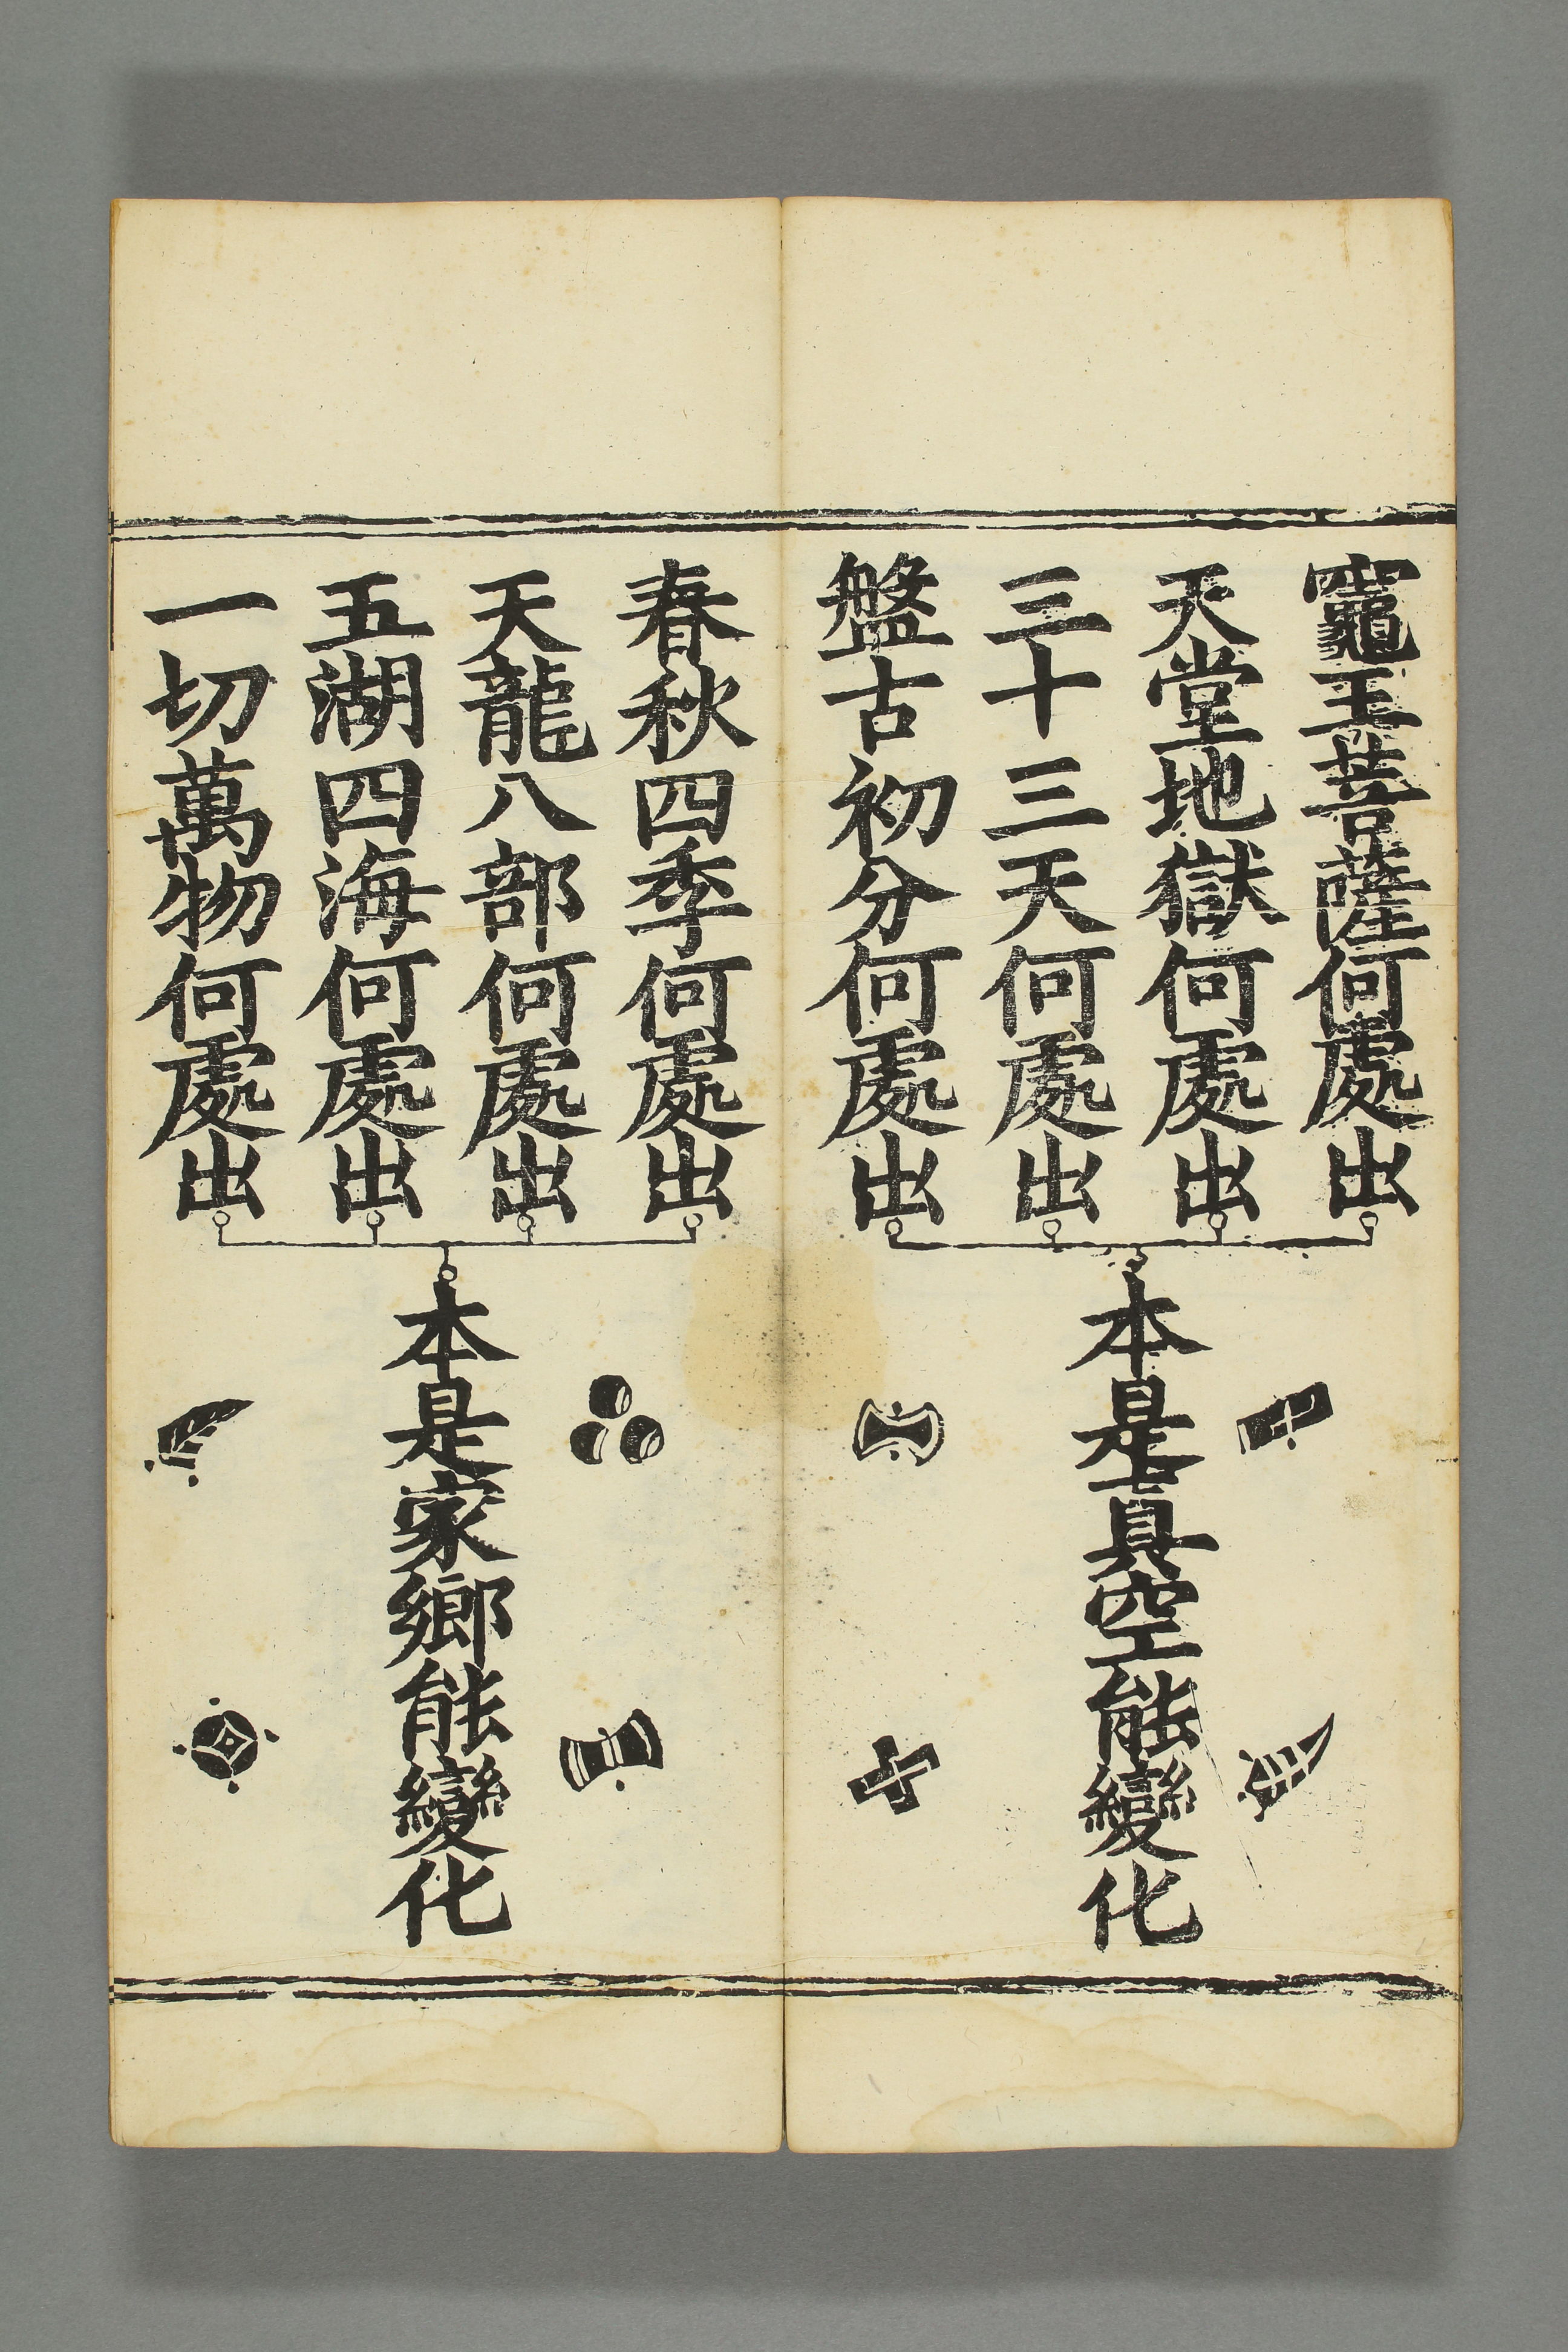 竈王菩薩何處出
天堂地獄何處出
三十三天何處出
盤古初分何處出
本是真空能變化
春秋四季何處出
天龍八部何處出
五湖四海何處出
一切萬物何處出
本是家鄉能變化